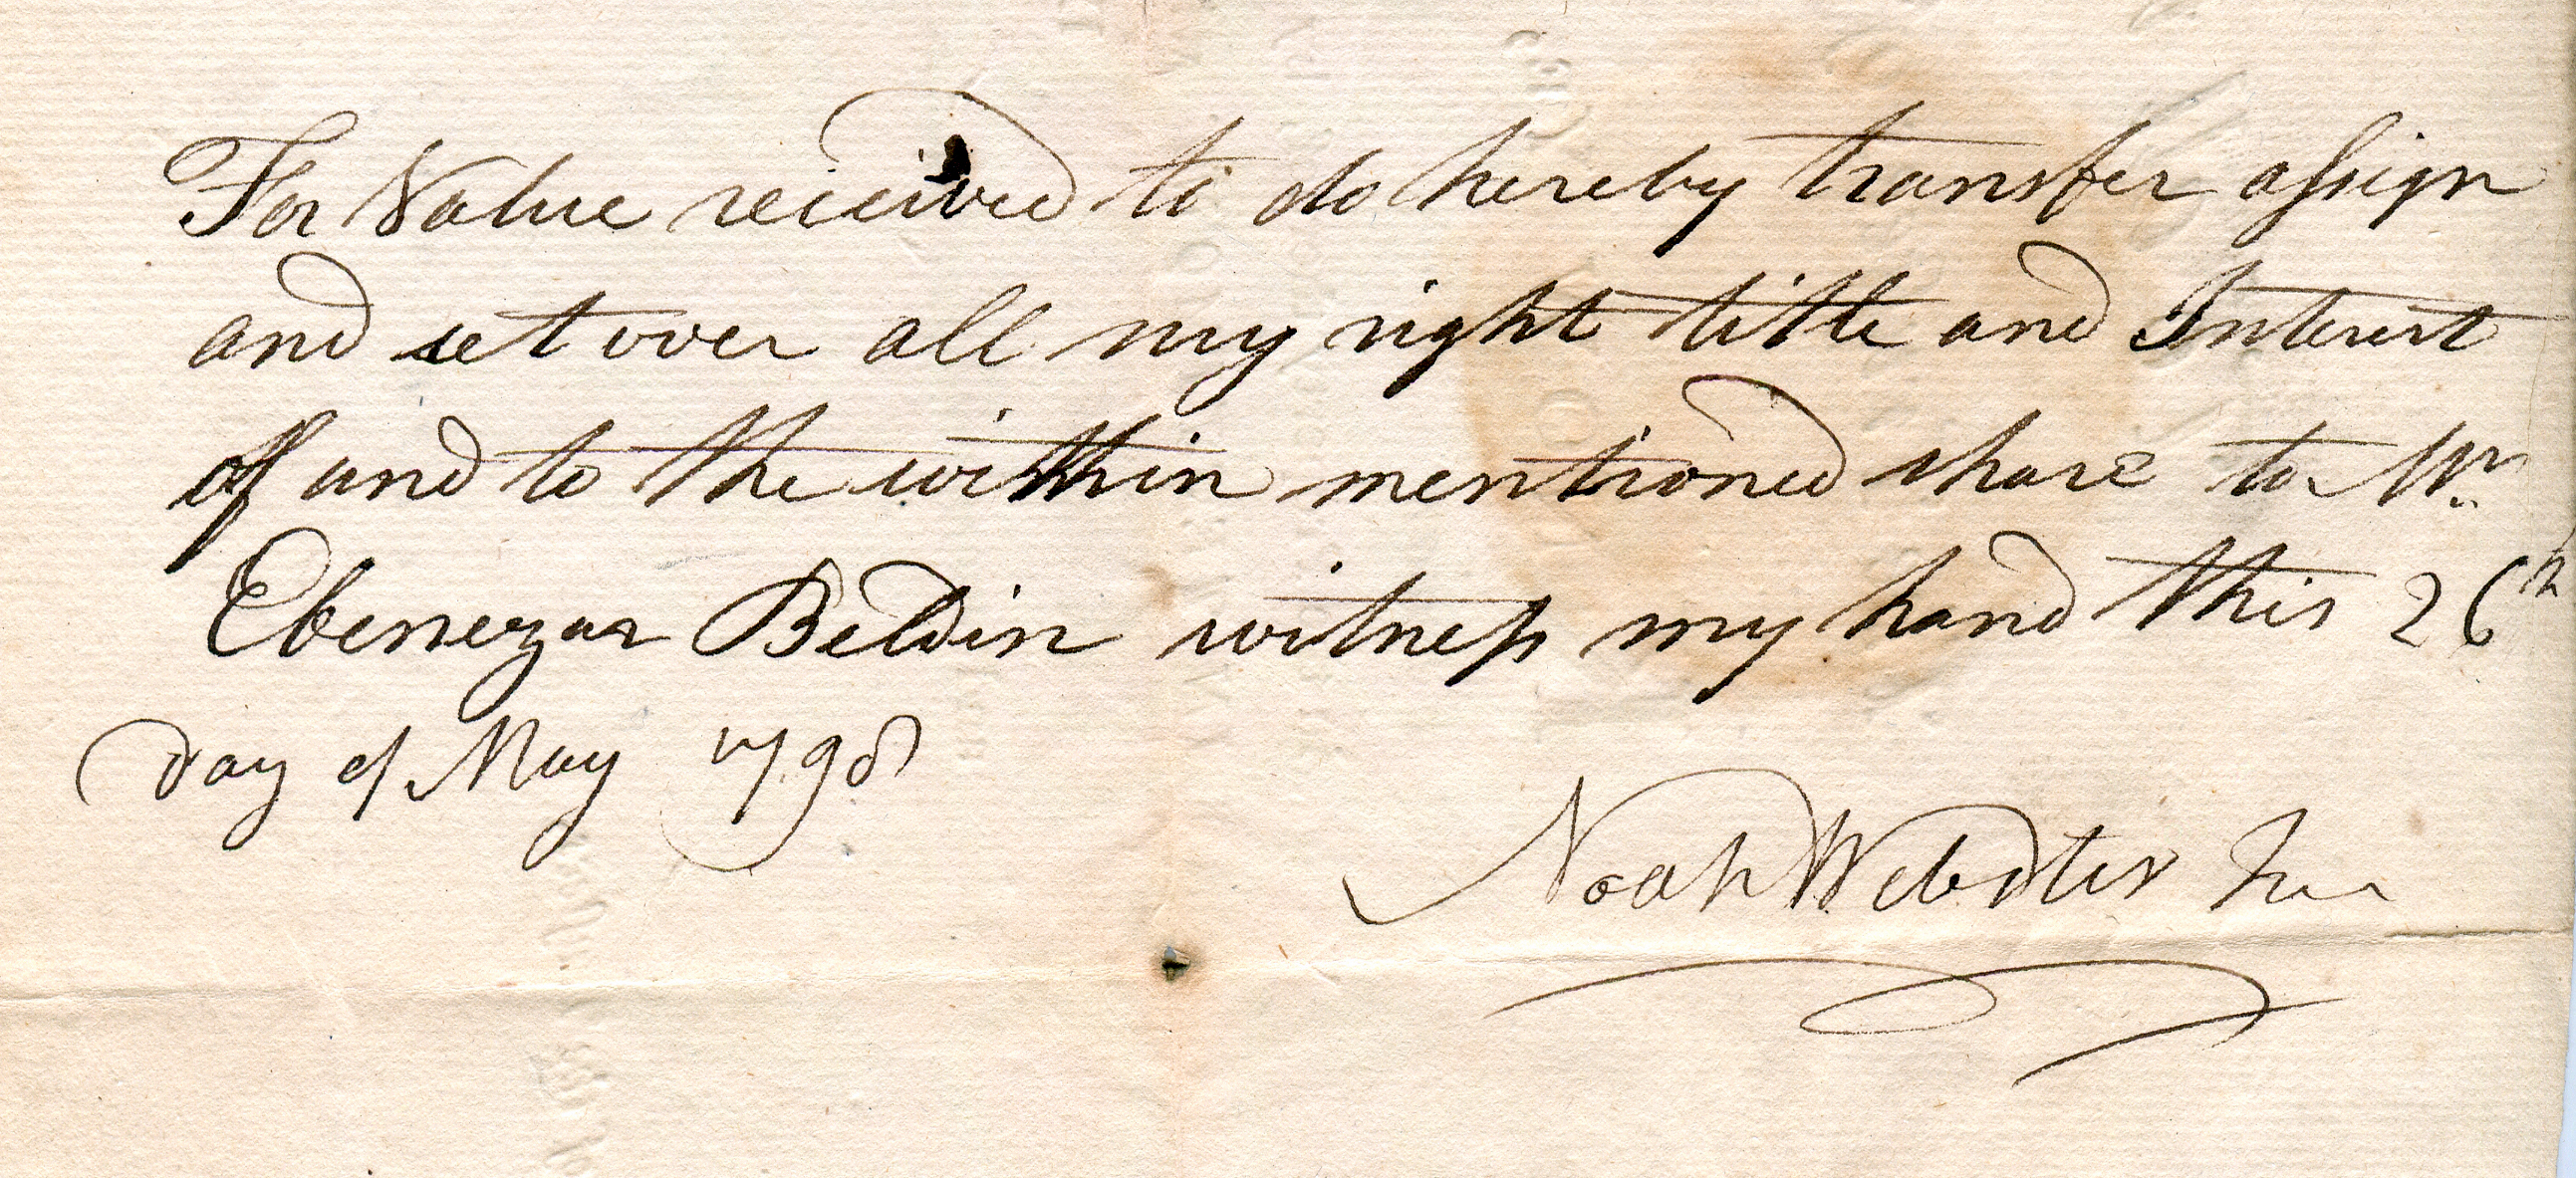 For Value received to do hereby transfer aſsign
and set over all my right title and Interest
off and to the within mentioned share to Mr
Ebenezar Beldin witneſs my hand this 26th
day of May 1798
Noah Webster Jun